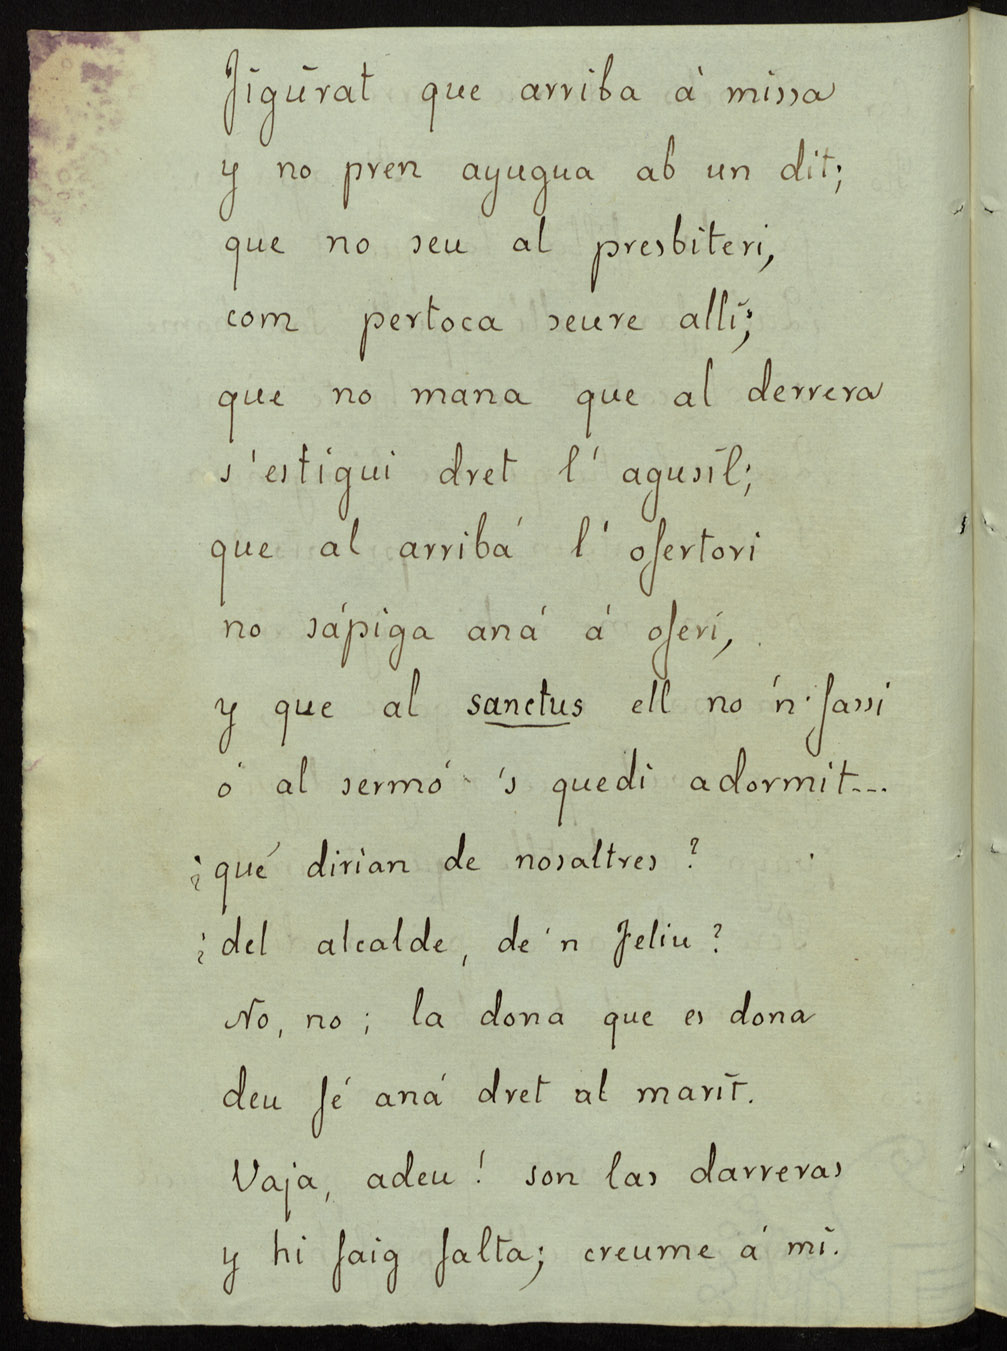 Figúrat que arriba á missa
y no pren aygua ab un dit;
que no seu al presbiteri,
com pertoca seure allí;
que no mana que al derrera
s'estigui dret l'agusíl;
que al arribá l'ofertori
no sápiga aná á oferí,
y que al sanctus ell no 'n fassi
ó al sermó 's quedi adormit...
¿qué dirían de nosaltres?
¿del alcalde, de 'n Feliu?
No, no; la dona que es dona
deu fé aná dret al marít.
Vaja, adeu! son las darreras
y hi faig falta; creume á mí.